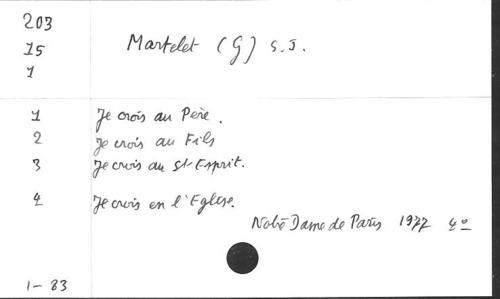 203
15 Martelet (G) S.J.
1
1 Je crois au Père.
2 Je crois au Fils
3 Je crois au St Esprit.
4 Je crois en l'Eglise.
Notre Dame de Paris 1977 4°
1-83